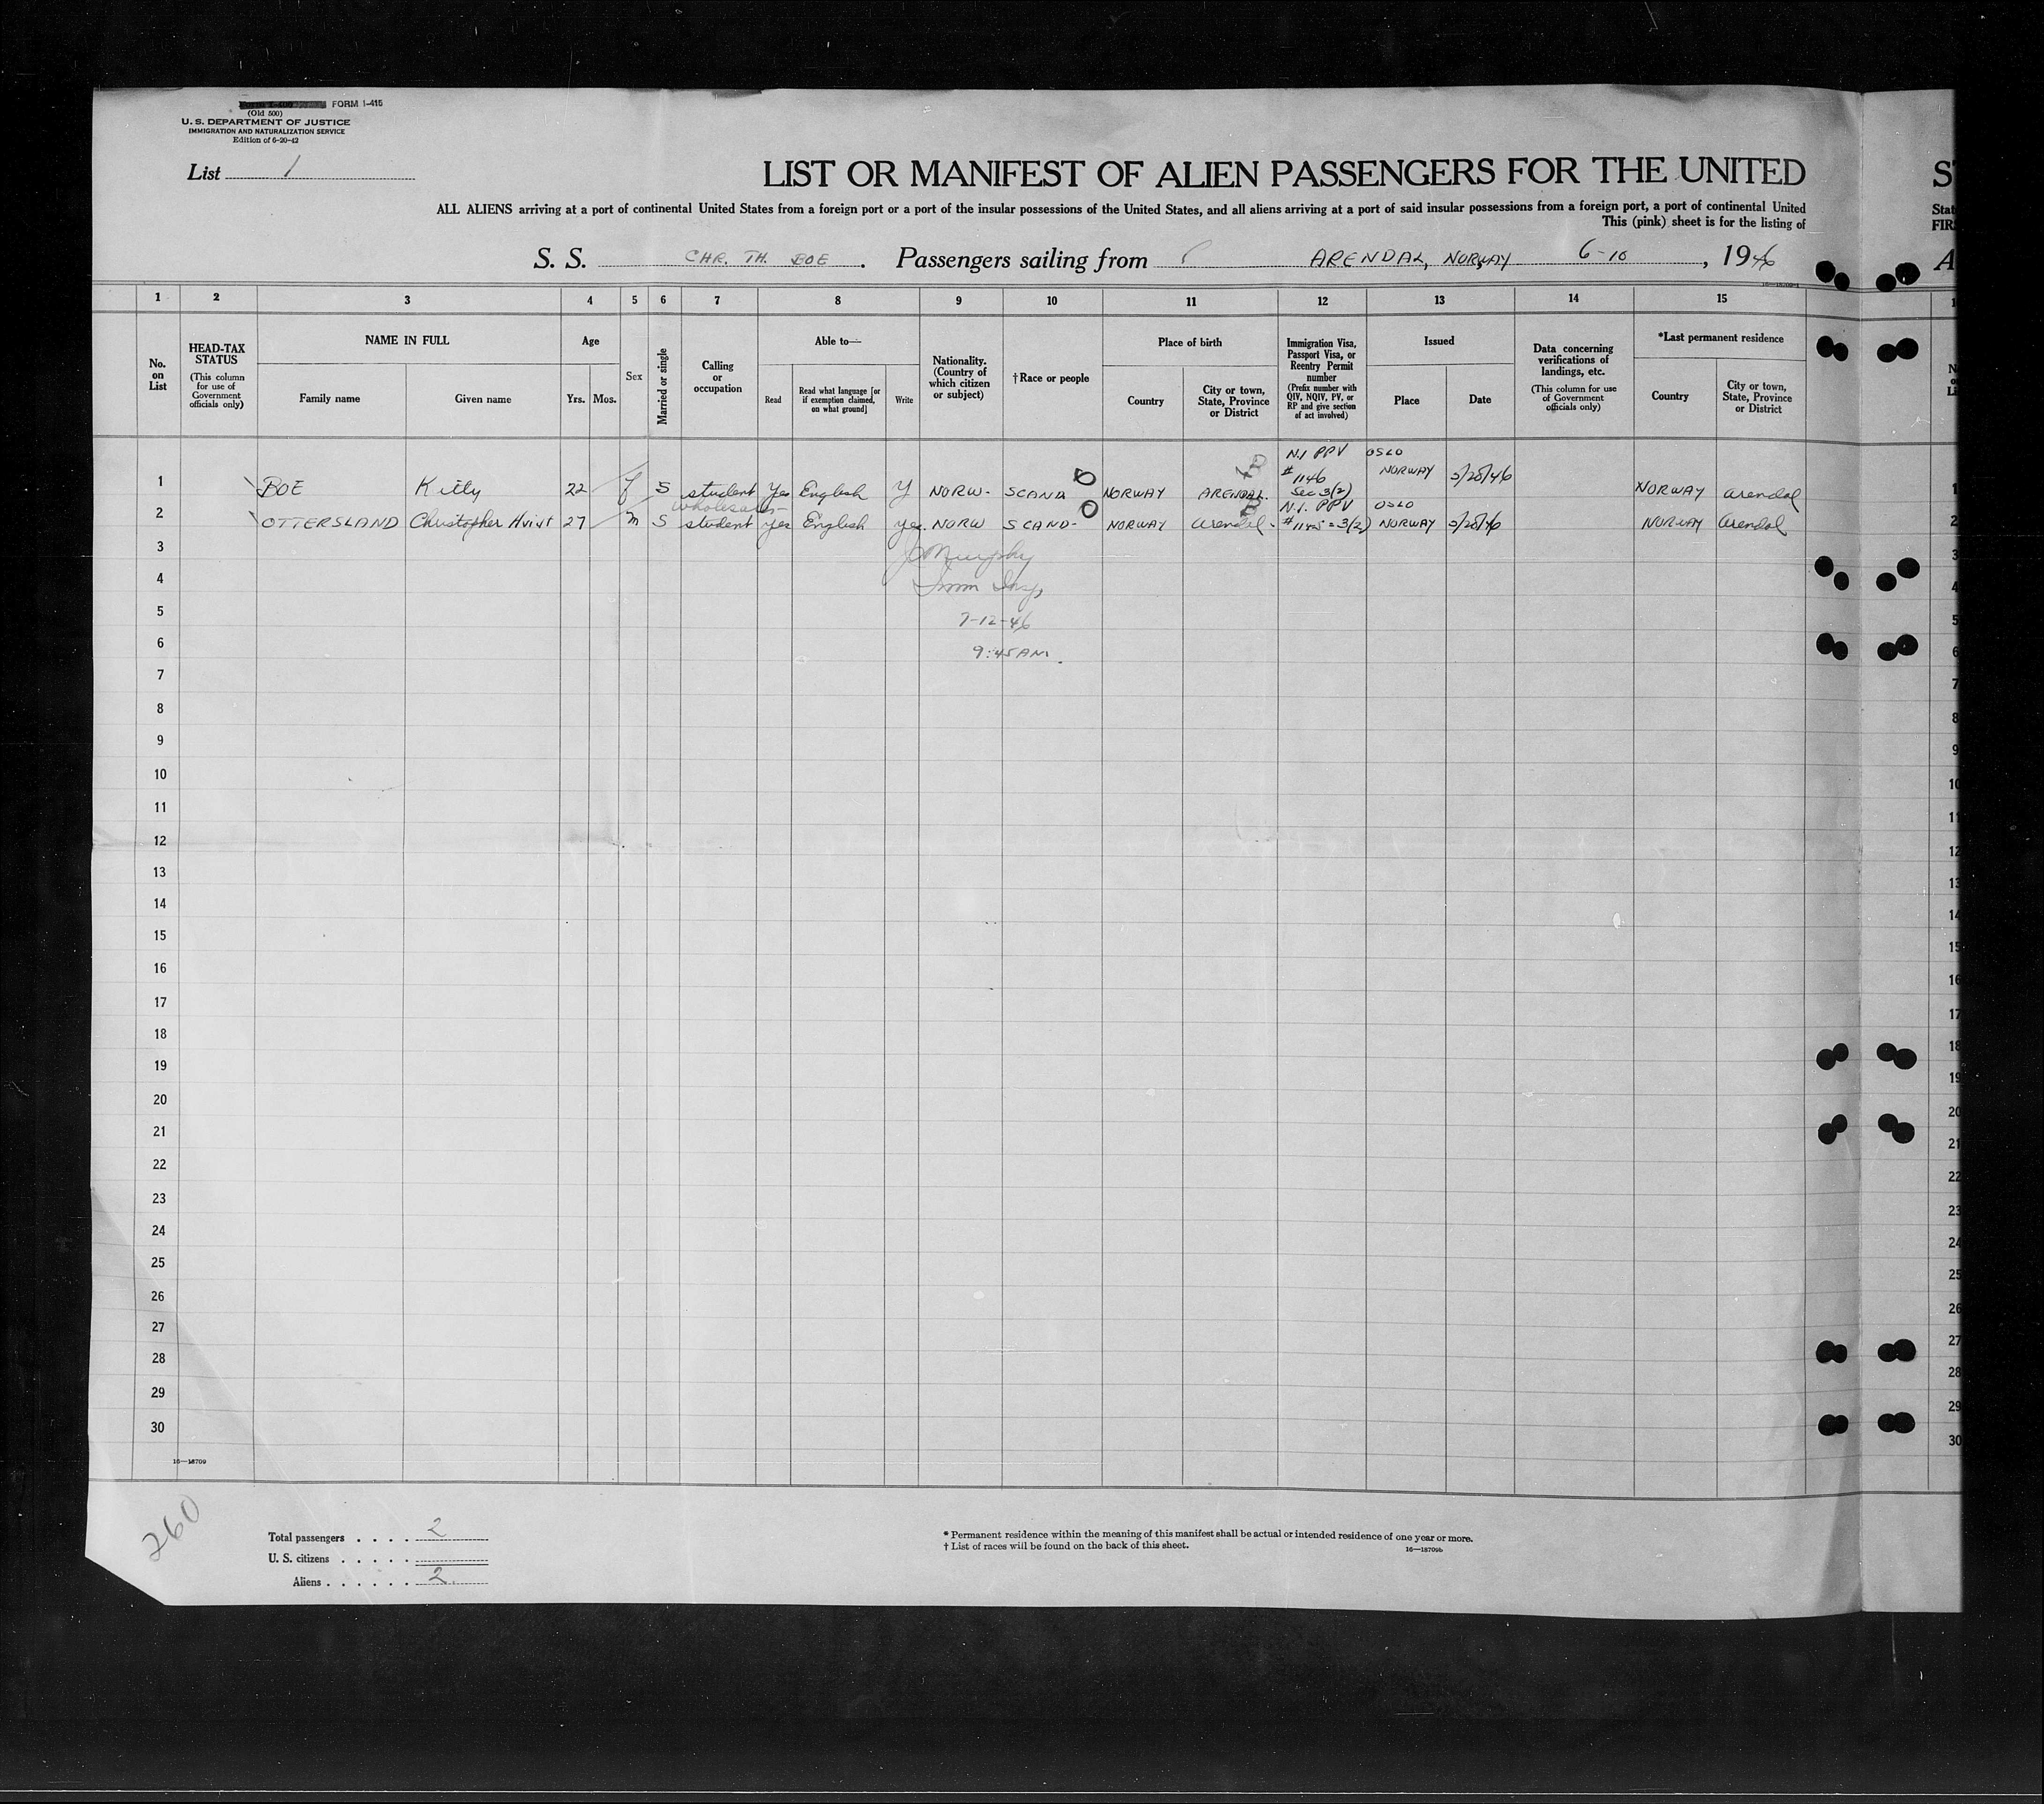 FORM I-415
(Old 500)
U. S. DEPARTMENT OF JUSTICE
IMMIGRATION AND NATURALIZATION SERVICE
Edition of 6-20-42
List 1
LIST OR MANIFEST OF ALIEN PASSENGERS FOR THE UNITED
ALL ALIENS arriving at a port of continental United States from a foreign port or a port of the insular possessions of the United States, and all aliens arriving at a port of said insular possessions from a foreign port, a port of continental United
This (pink) sheet is for the listing of
S. S. CHR. TH. BOE. Passengers sailing from ARENDAL, NORWAY 6-10, 1946
16—18709-1
1 2 3 4 5 6 7 8 9 10 11 12 13 14 15
No. on List
HEAD-TAX STATUS (This column for use of Government officials only)
NAME IN FULL
Family name
Given name
Age
Yrs.
Mos.
Sex
Married or single
Calling or occupation
Able to—
Read
Read what language [or if exemption claimed, on what ground]
Write
Nationality. (Country of which citizen or subject)
†Race or people
Place of birth
Country
City or town, State, Province or District
Immigration Visa, Passport Visa, or Reentry Permit number (Prefix number with QIV, NQIV, PV, or RP and give section of act involved)
Issued
Place
Date
Data concerning verifications of landings, etc. (This column for use of Government officials only)
*Last permanent residence
Country
City or town, State, Province or District
1 BOE Kitty 22 f S student Yes English Y NORW- SCAND NORWAY ARENDAL. N.I PPV # 1146 Sec 3(2) OSLO NORWAY 5/28/46 NORWAY Arendal
2 OTTERSLAND Christopher Hvist 27 m S student yes English yes NORW SCAND- NORWAY Arendal- N.I. PPV #1145 = 3/2) OSLO NORWAY 5/28/46 NORWAY Arendal
3 Murphy
4 Imm Insp
5 7-12-46
6 9:45AM.
7
8
9
10
11
12
13
14
15
16
17
18
19
20
21
22
23
24
25
26
27
28
29
30
16—18709
260
Total passengers . . . . 2
U. S. citizens . . . . .
Aliens . . . . . . 2
* Permanent residence within the meaning of this manifest shall be actual or intended residence of one year or more.
† List of races will be found on the back of this sheet.
16—18709b